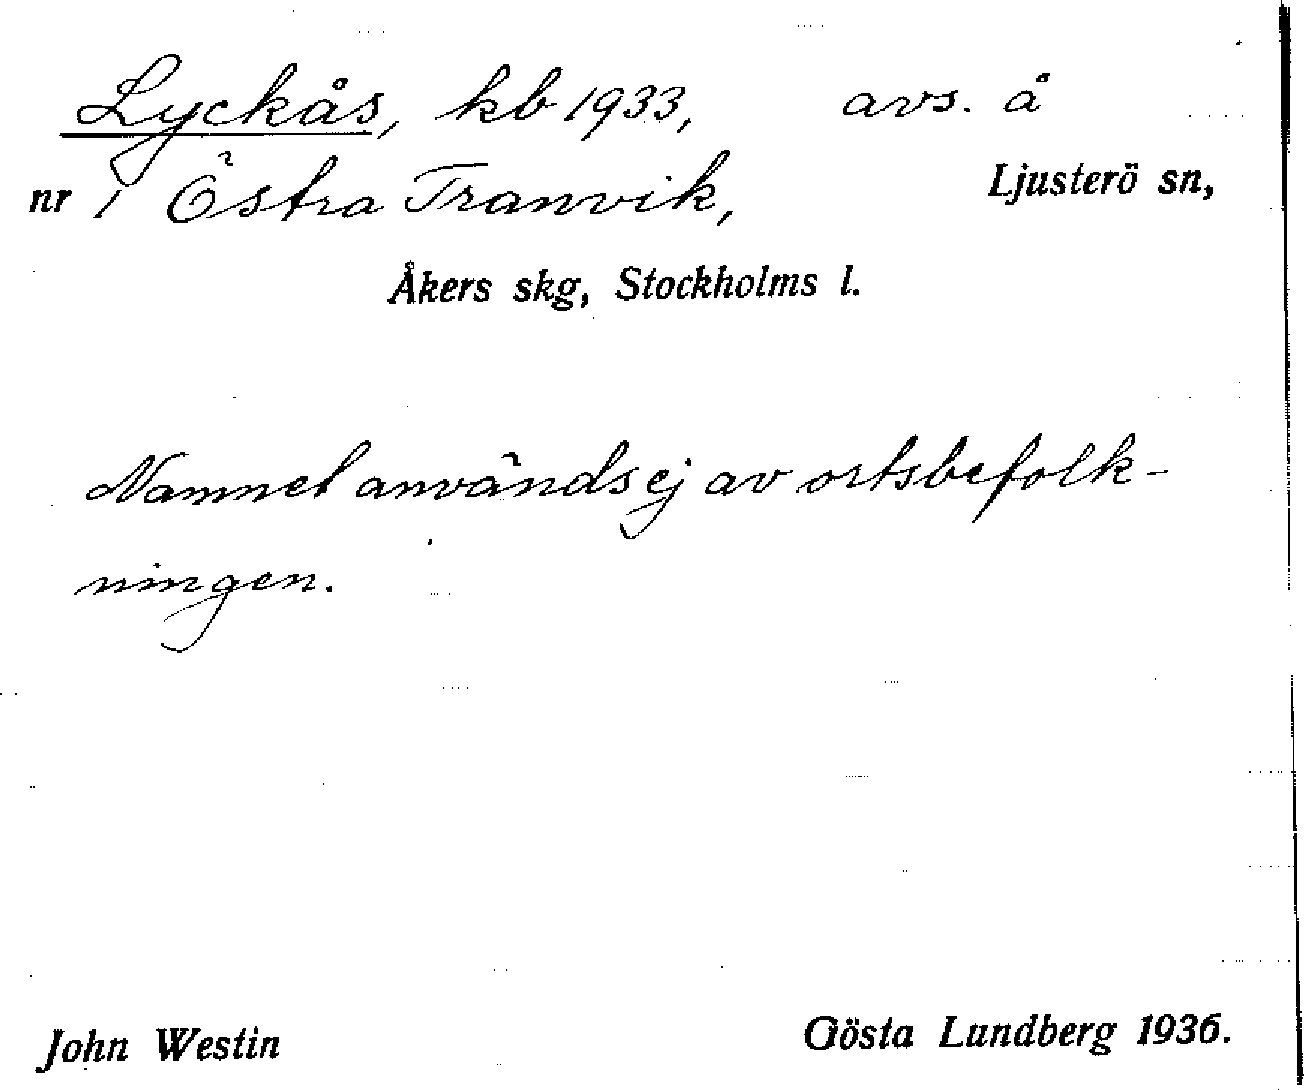 Lyckås, kb 1933, avs. å
nr 1 Östra Tranvik, Ljusterö sn,
Åkers skg, Stockholms l.
Namnet används ej av ortsbefolk-
ningen.
John Westin Gösta Lundberg 1936.